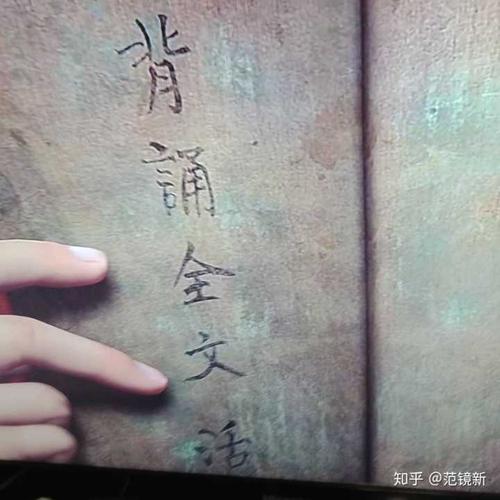 背誦全文活
知乎 @范镜新